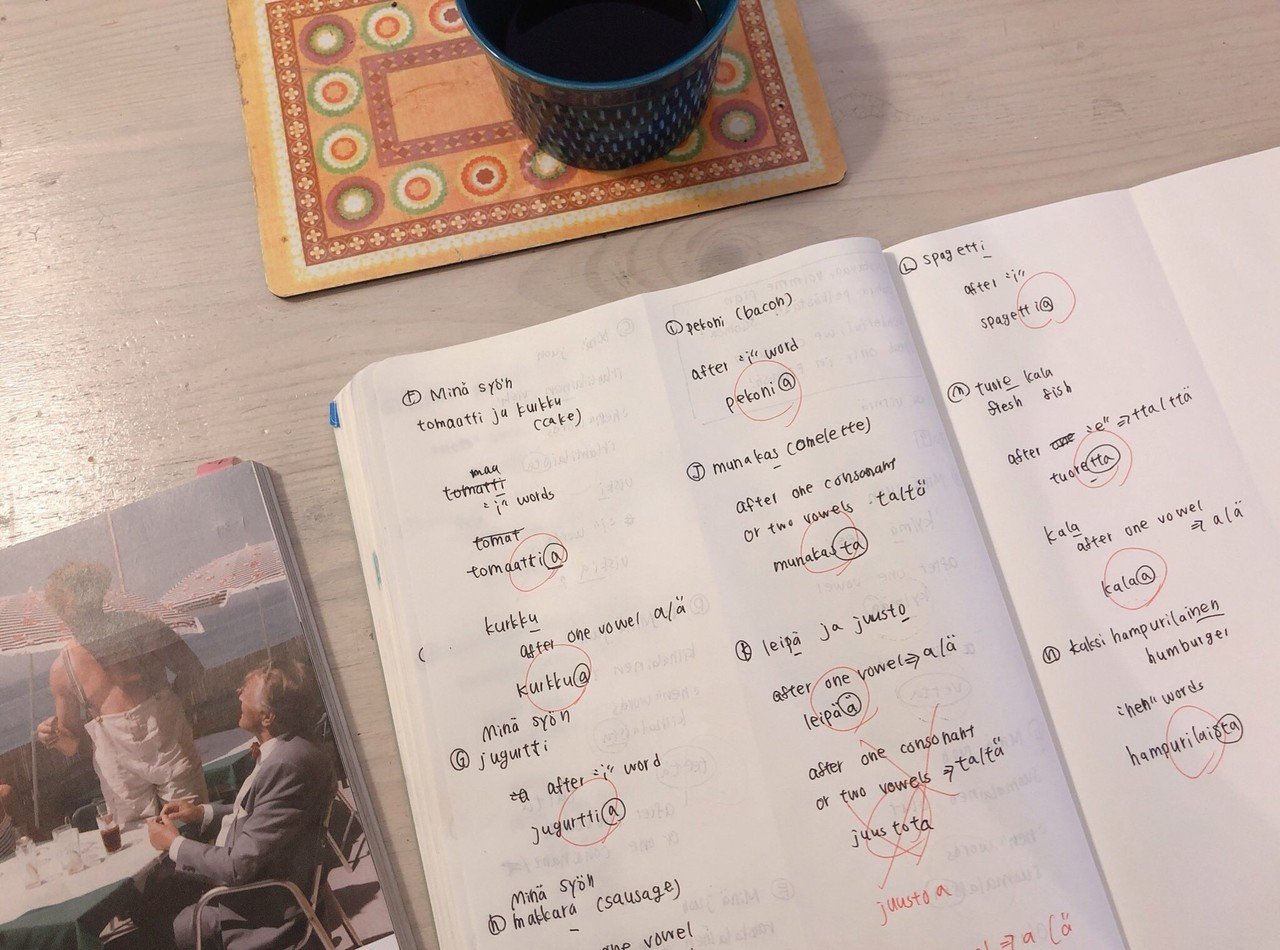 F Minä syön
tomaatti ja kurkku
(cake)
maa
tomatti
"i" words
tomat
tomaattia
kurkku
after one vowel a/ä
kurkkua
Minä syön
G jugurtti
after "i" word
jugurttia
Minä syön
H makkara (sausage)
one vowel
I pekoni (bacon)
after "i" word
pekonia
J munakas (omelette)
after one consonant
or two vowels ta/tä
munakasta
K leipä ja juusto
after one vowel ⇒ a/ä
leipää
after one consonant
or two vowels ⇒ ta/tä
juustota
juustoa
⇒ a/ä
L spagetti
after "i"
spagettia
M tuore kala
fresh fish
after "e" ⇒ tta/ttä
tuoretta
kala
after one vowel
⇒ a/ä
kalaa
N kaksi hampurilainen
humburger
"nen" words
hampurilaista